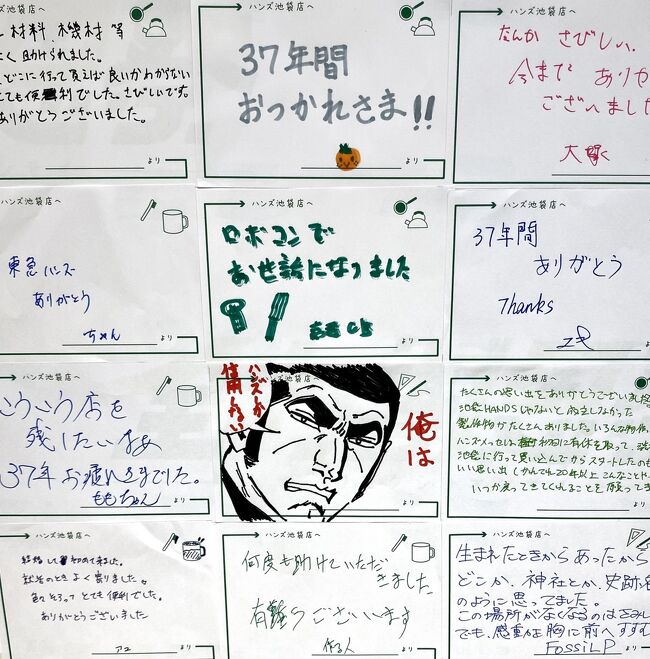 材料、機材 等
く助けられました。
どこに行って買えば良いかわからない
ても便利でした。さびしいです。
ありがとうございました。
より
ハンズ池袋店へ
37年間
おつかれさま!!
より
なんか さびしい.
今まで ありが
ございました
大
ハンズ池袋店へ
東急ハンズ
ありがとう
ちゃん
より
ハンズ池袋店へ
ロボコンで
お世話になりました
より
ハンズ池袋店へ
37年間
ありがとう
Thanks
より
ハンズ池袋店へ
こういう店を
残したいなぁ
37年 お疲れさまでした。
ももちゃん
より
ハンズ池袋店へ
俺は
ハンズしか
信用しない
たくさんの思い出をありがとうございました
HANDSじゃないと成立しなかった
製作物がたくさんありました。いろんな物作
ハンズメッセは初日に有休を取って、
池袋に行って買い込んでからスタートしたのも
いい思い出しかんでね20年以上 こんなこと
いつか戻ってきてくれることを願ってま
ハンズ池袋店へ
結婚して初めて来ました。
就活のとき よく寄りました。
色々そろって とても便利でした。
ありがとうございました
より
ハンズ池袋店へ
何度も助けていただ
きました
有難うございます
作る人
より
生まれたときからあったから
どこか、神社とか、史跡名
のように思ってました。
この場所がなくなるのはさみし
でも、感動は胸に前へすすむ
FOSSIL P
より